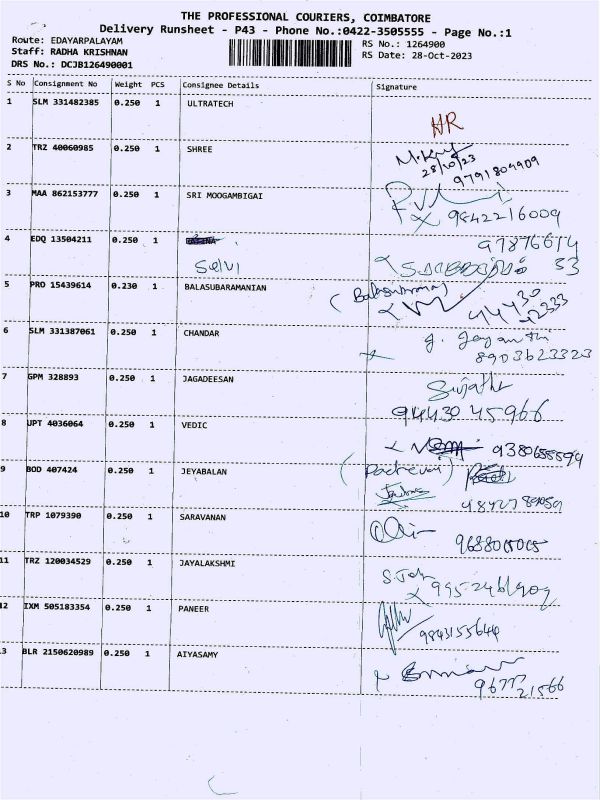 THE PROFESSIONAL COURIERS, COIMBATORE
Delivery Runsheet - P43 - Phone No.:0422-3505555 - Page No.:1
Route: EDAYARPALAYAM
RS No.: 1264900
Staff: RADHA KRISHNAN
RS Date: 28-Oct-2023
DRS No.: DCJB126490001
S No Consignment No Weight PCS Consignee Details Signature
1 SLM 331482385 0.250 1 ULTRATECH
HR
2 TRZ 40060985 0.250 1 SHREE
28/10/23
9791809909
3 MAA 862153777 0.250 1 SRI MOOGAMBIGAI
9842216009
4 EDQ 13504211 0.250 1
Selvi
97876614
33
5 PRO 15439614 0.230 1 BALASUBARAMANIAN
94430
42333
6 SLM 331387061 0.250 1 CHANDAR
g. Jayanthi
8903623323
7 GPM 328893 0.250 1 JAGADEESAN
Sujatha
94430 45966
8 UPT 4036064 0.250 1 VEDIC
9380655594
9 BOD 407424 0.250 1 JEYABALAN
10 TRP 1079390 0.250 1 SARAVANAN
11 TRZ 120034529 0.250 1 JAYALAKSHMI
12 IXM 505183354 0.250 1 PANEER
9843155644
13 BLR 2150620989 0.250 1 AIYASAMY
96777 21566